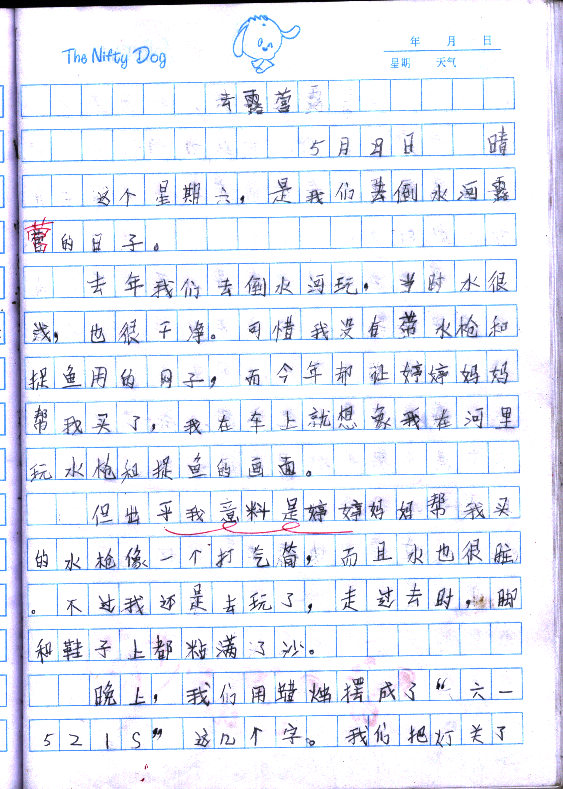 The Nifty Dog
年 月 日
星期 天气
去露营
5月29日 晴
这个星期六，是我们去倒水河露
营的日子。
去年我们去倒水河玩，当时水很
浅，也很干净。可惜我没有带水枪和
捉鱼用的网子，而今年却让婷婷妈妈
帮我买了，我在车上就想象我在河里
玩水枪和捉鱼的画面。
但出乎我意料是婷婷妈妈帮我买
的水枪像一个打气筒，而且水也很脏
。不过我还是去玩了，走过去时，脚
和鞋子上都粘满了沙。
晚上，我们用蜡烛摆成了“六一
521S”这几个字。我们把灯关了